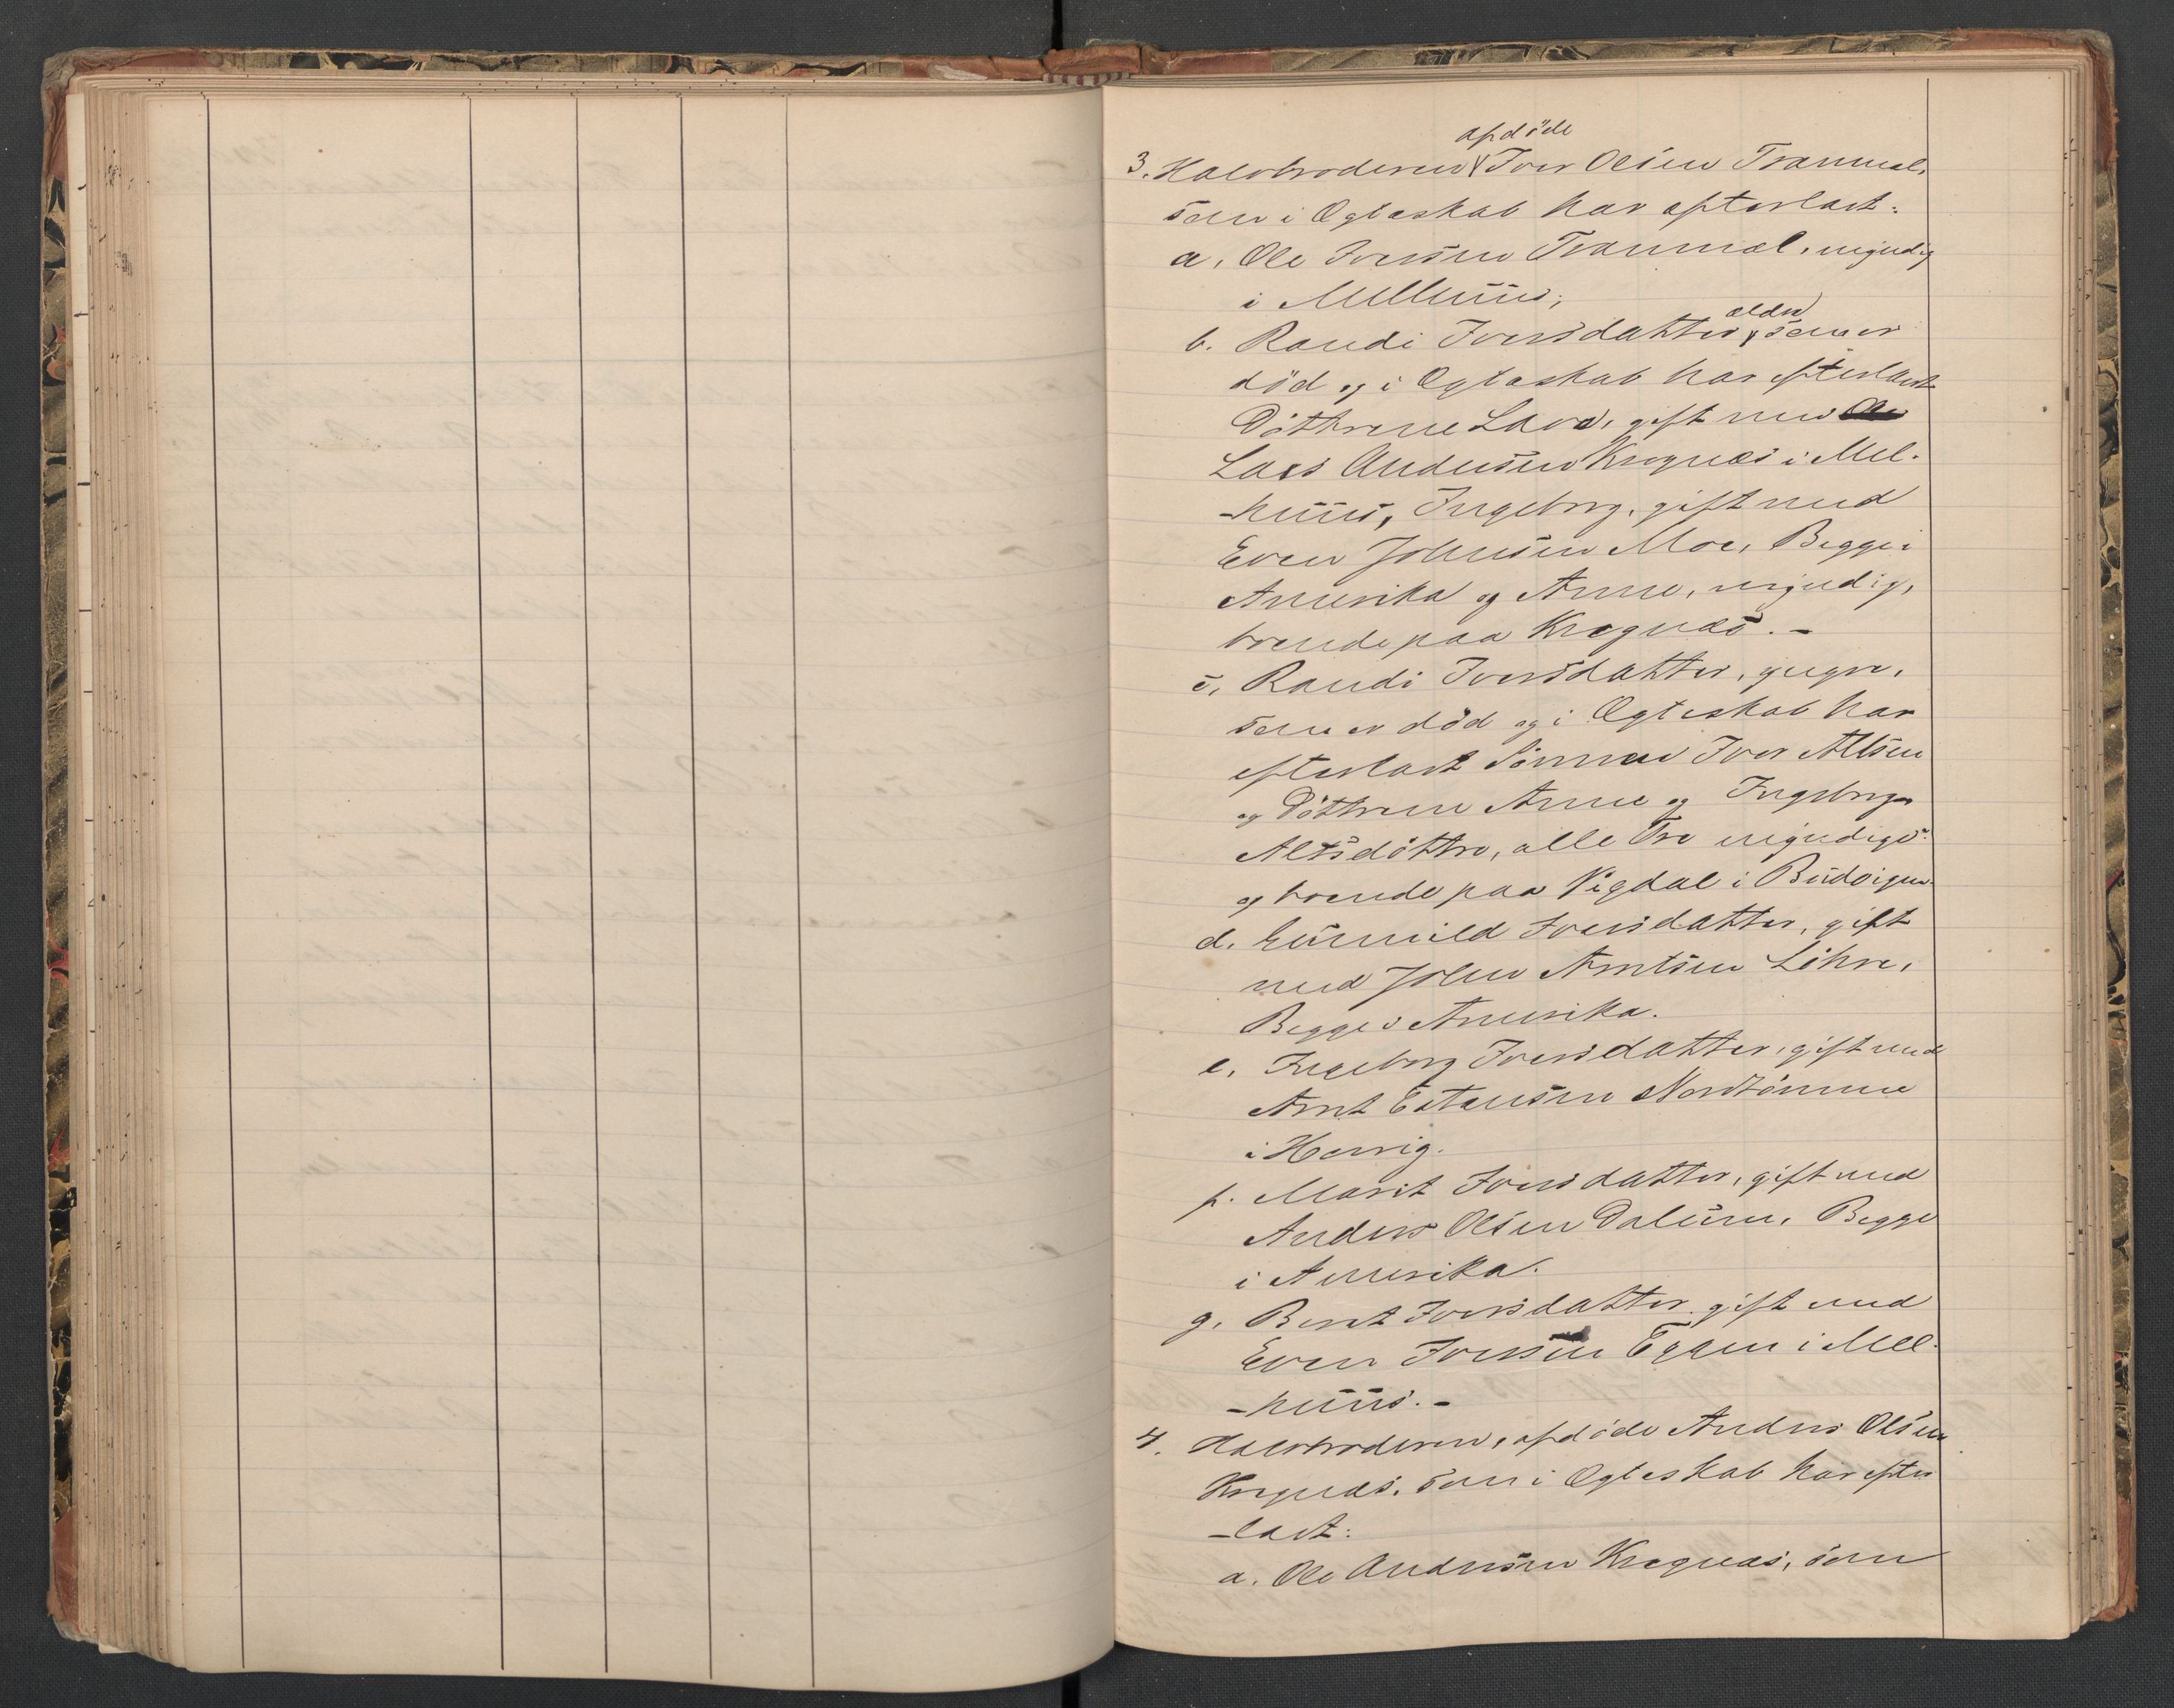 afdöde
3. Halvbroderen Iver Olsen Tranmæl,
som i Ægteskab har efterladt:
a, Ole Iversen Tranmæl, myndig
i Melhuus;
ældre
b. Randi Iversdatter, som er
död og i Ægteskab har efterladt
Döttrene Lava, gift med
Lars Andersen Krognæs i Mel-
-huus, Ingeborg, gift med
Even Johnsen Moe, Begge i
Amerika og Anne, myndig,
boende paa Krognæs. -
c, Randi Iversdatter, yngre,
som er död og i Ægteskab har
efterladt Sönnen Iver Altsen
og Döttrene Anne og Ingeborg
Altsdöttre, alle Tre myndige
og boende paa Vigdal i Budvigen.
d. Gunnild Iversdatter, gift
med John Arntsen Löhre,
Begge i Amerika.
e, Ingeborg Iversdatter, gift med
Arnt Estensen Nordtömme
i Horrig.
f. Marit Iversdatter, gift med
Anders Olsen Dalum, Begge
i Amerika.
g, Berit Iversdatter gift med
Even Iversen Eggen i Mel-
-huus. -
4. Halvbroderen, afdöde Anders Olsen
Krognæs, som i Ægteskab har efter
-ladt:
a. Ole Andersen Krognæs, som